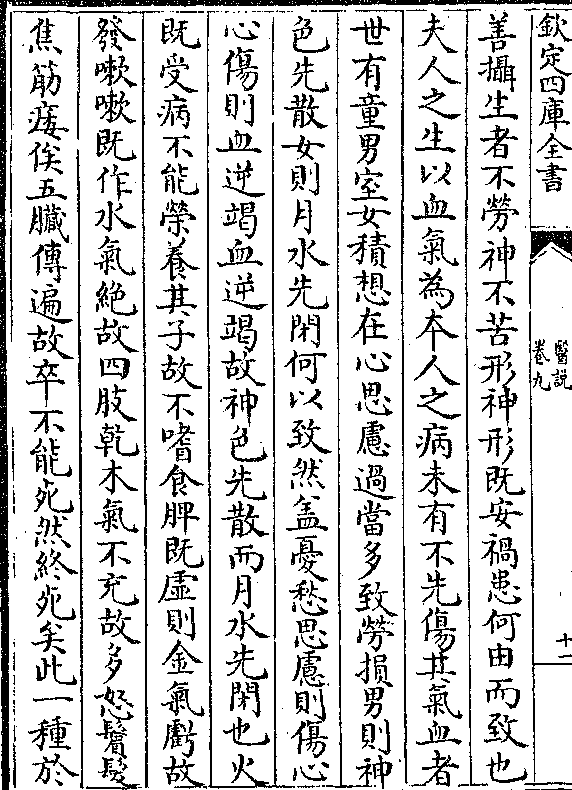 欽定四庫全書
醫説
卷九
十二
善攝生者不勞神不苦形神形既安禍患何由而致也
夫人之生以血氣為本人之病未有不先傷其氣血者
世有童男室女積想在心思慮過當多致勞損男則神
色先散女則月水先閉何以致然盖憂愁思慮則傷心
心傷則血逆竭血逆竭故神色先散而月水先閉也火
既受病不能榮養其子故不嗜食脾既虛則金氣虧故
發嗽嗽既作水氣絶故四肢乾木氣不充故多怒鬢髮
焦筋痿俟五臟傳遍故卒不能死然終死矣此一種於